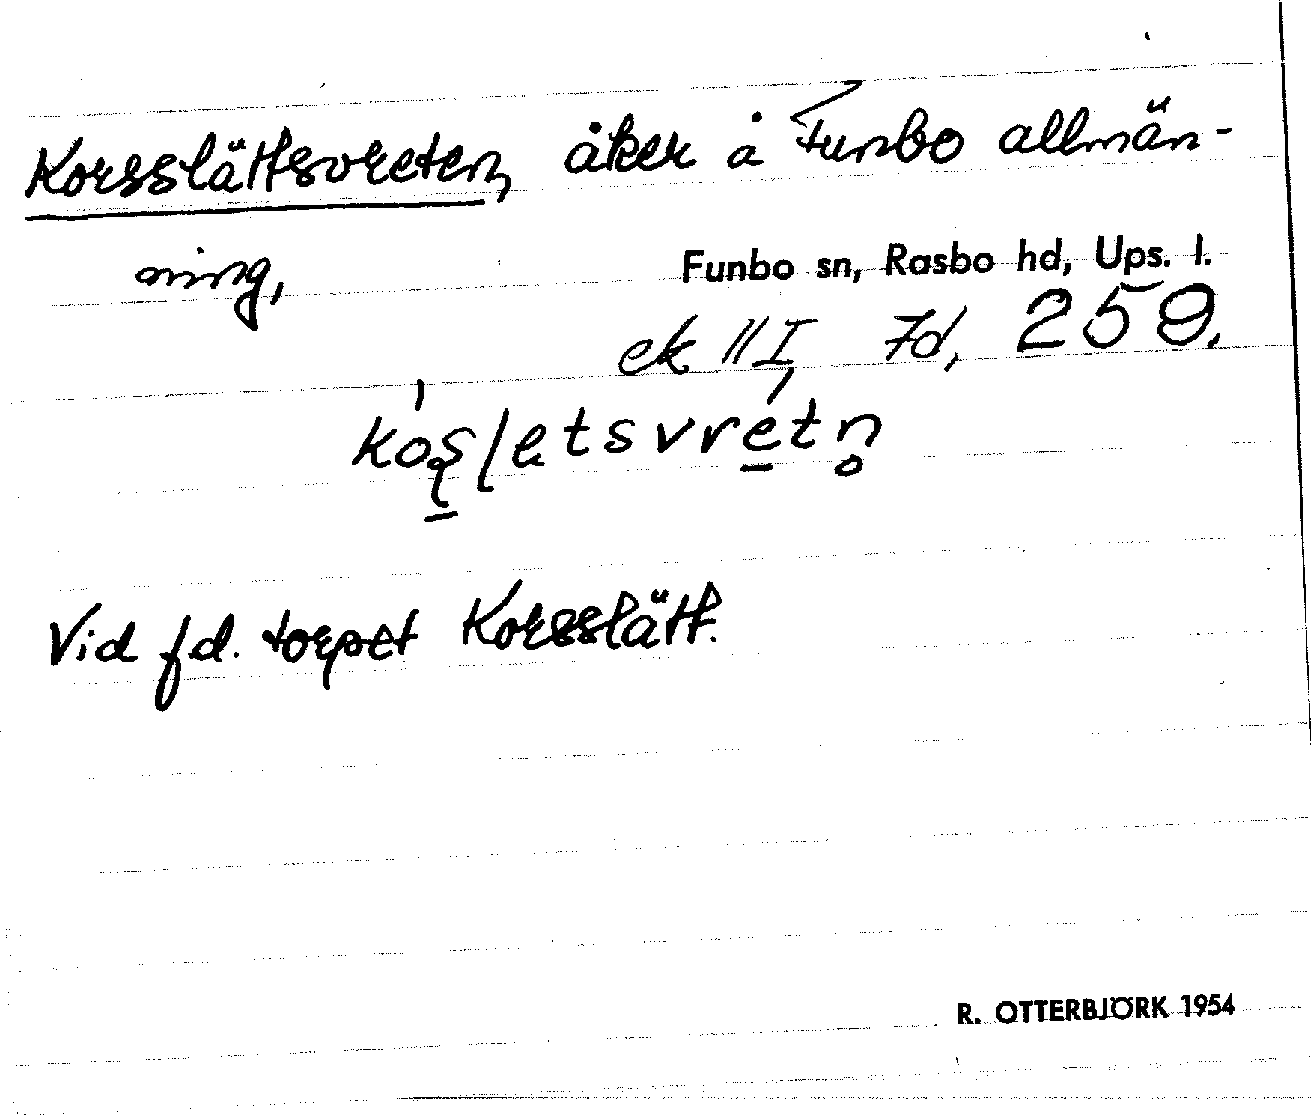 Korsslättsvreten, åker å Funbo allmän-
ning,
Funbo sn, Rasbo hd, Ups. l.
ek 11 I, 7d, 259.
Vid fd. torpet Korsslätt.
R. OTTERBJÖRK 1954